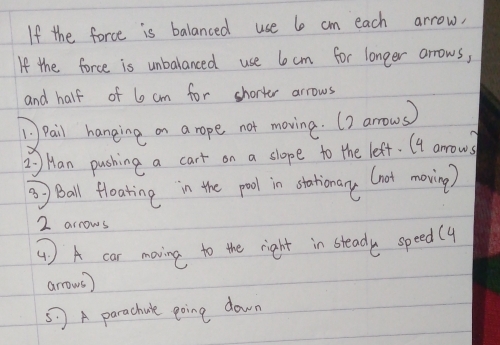 If the force is balanced use 6 cm each arrow.
If the force is unbalanced use 6 cm for longer arrows,
and half of 6 cm for shorter arrows
1.) Pail hanging on a rope not moving. (2 arrows)
2.) Man pushing a cart on a slope to the left. (4 arrows
3.) Ball floating in the pool in stationary (not moving)
2 arrows
4.) A car moving to the right in steady speed (4
arrows)
5.) A parachute going down